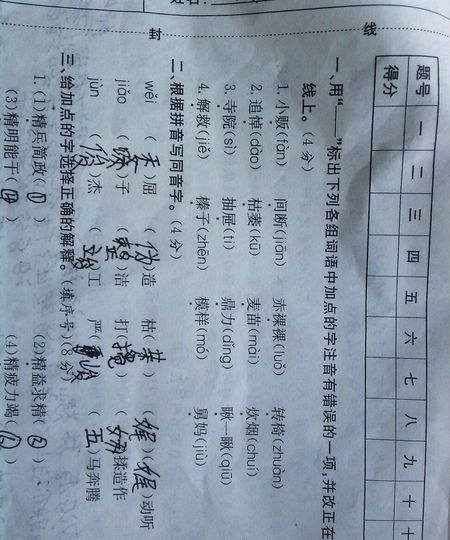 封 线
题号 一 二 三 四 五 六 七 八 九 十
得分
一、用“____”标出下列各组词语中加点的字注音有错误的一项,并改正在
线上。(4分)
1. 小贩(fàn) 间断(jiān) 赤裸裸(luǒ) 转椅(zhuàn)
2. 追悼(dào) 枯萎(kū) 麦苗(mài) 炊烟(chuí)
3. 寺院(sì) 抽屉(ti) 鼎力(dǐng) 瞅一瞅(qiū)
4. 解救(jiě) 榛子(zhēn) 模样(mó) 舅妈(jiù)
二、根据拼音写同音字。(4分)
wěi ( )屈 (伪)造 枯( ) (娓)(娓)动听
jiǎo ( )子 ( )洁 打(搅) ( )揉造作
jùn (俊)杰 ( )工 严( ) ( )马奔腾
三、给加点的字选择正确的解释。(填序号)(8分)
1. (1)精兵简政( ) (2)精益求精(②)
(3)精明能干(④) (4)精疲力竭( )